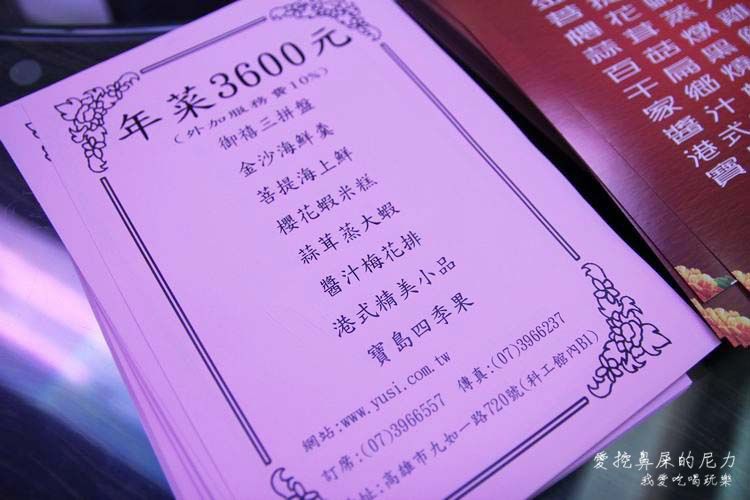 年菜3600元
(外加服務費10%)
御禧三拼盤
金沙海鮮羹
菩提海上鮮
櫻花蝦米糕
蒜茸蒸大蝦
醬汁梅花排
港式精美小品
寶島四季果
網站:www.yusi.com.tw 傳真:(07)3966237
訂席:(07)3966557
址:高雄市九如一路720號(科工館內B1)
百千家醬港寶
愛挖鼻屎的尼力
我愛吃喝玩樂